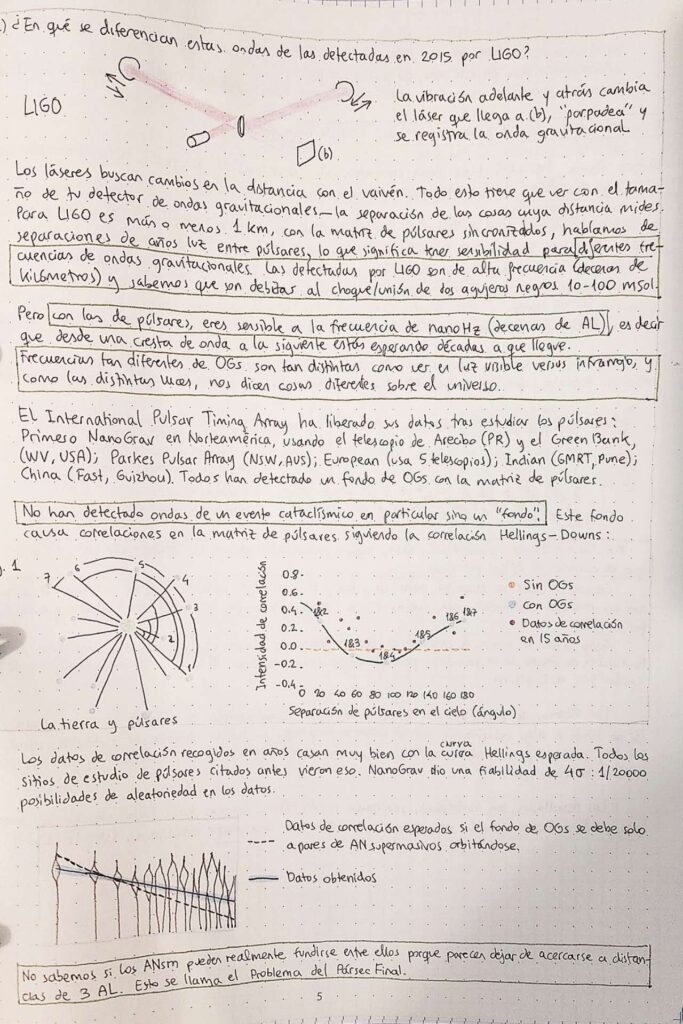 ) ¿En qué se diferencian estas ondas de las detectadas en 2015 por LIGO?
LIGO
(b)
La vibración adelante y atrás cambia
el láser que llega a (b), "parpadea" y
se registra la onda gravitacional
Los láseres buscan cambios en la distancia con el vaivén. Todo esto tiene que ver con el tama-
ño de tu detector de ondas gravitacionales—la separación de las cosas cuya distancia mides.
Para LIGO es más o menos 1 km, con la matriz de púlsares sincronizados, hablamos de
separaciones de años luz entre púlsares, lo que significa tener sensibilidad para diferentes fre-
cuencias de ondas gravitacionales. Las detectadas por LIGO son de alta frecuencia (decenas de
kilómetros) y sabemos que son debidas al choque/unión de dos agujeros negros 10-100 mSol.
Pero con las de púlsares, eres sensible a la frecuencia de nanoHz (decenas de AL), es decir
que desde una cresta de onda a la siguiente estás esperando décadas a que llegue.
Frecuencias tan diferentes de OGs son tan distintas como ver en luz visible versus infrarrojo, y
como las distintas luces, nos dicen cosas diferentes sobre el universo.
El International Pulsar Timing Array ha liberado sus datos tras estudiar los púlsares:
Primero NanoGrav en Norteamérica, usando el telescopio de Arecibo (PR) y el Green Bank,
(WV, USA); Parkes Pulsar Array (NSW, AUS); European (usa 5 telescopios); Indian (GMRT, Pune);
China (Fast, Guizhou). Todos han detectado un fondo de OGs con la matriz de púlsares.
No han detectado ondas de un evento cataclísmico en particular sino un "fondo". Este fondo
causa correlaciones en la matriz de púlsares siguiendo la correlación Hellings-Downs:
. 1
7 6 5 4 3 2 1
La tierra y púlsares
Intensidad de correlación
0.8
0.6
0.4
0.2
0.
-0.2
-0.4
1&2
1&3
1&4
1&5
1&6
1&7
0 20 40 60 80 100 120 140 160 180
Separación de púlsares en el cielo (ángulo)
Sin OGs
con OGs
Datos de correlación
en 15 años
Los datos de correlación recogidos en años casan muy bien con la curva Hellings esperada. Todos los
sitios de estudio de púlsares citados antes vieron eso. NanoGrav dio una fiabilidad de 4σ: 1/20000
posibilidades de aleatoriedad en los datos.
Datos de correlación esperados si el fondo de OGs se debe solo
a pares de AN supermasivos orbitándose.
Datos obtenidos
No sabemos si los ANsm pueden realmente fundirse entre ellos porque parecen dejar de acercarse a distan-
cias de 3 AL. Esto se llama el Problema del Pársec Final.
5